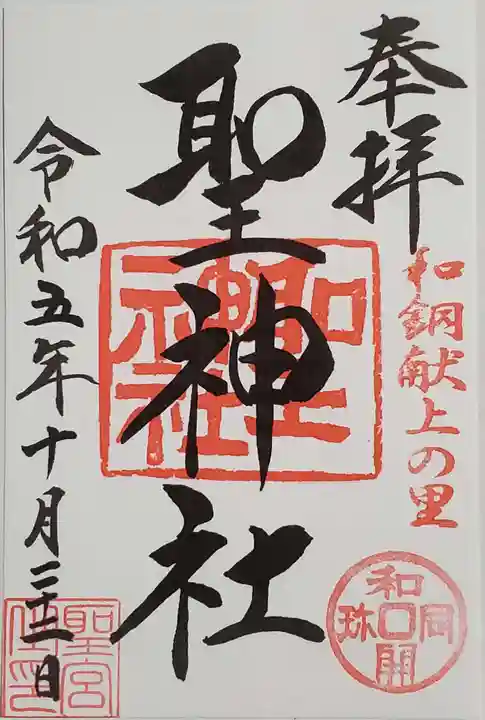 奉拝
和銅献上の里
和同開珎
聖神社
聖神社
令和五年十月二十二日
聖宮